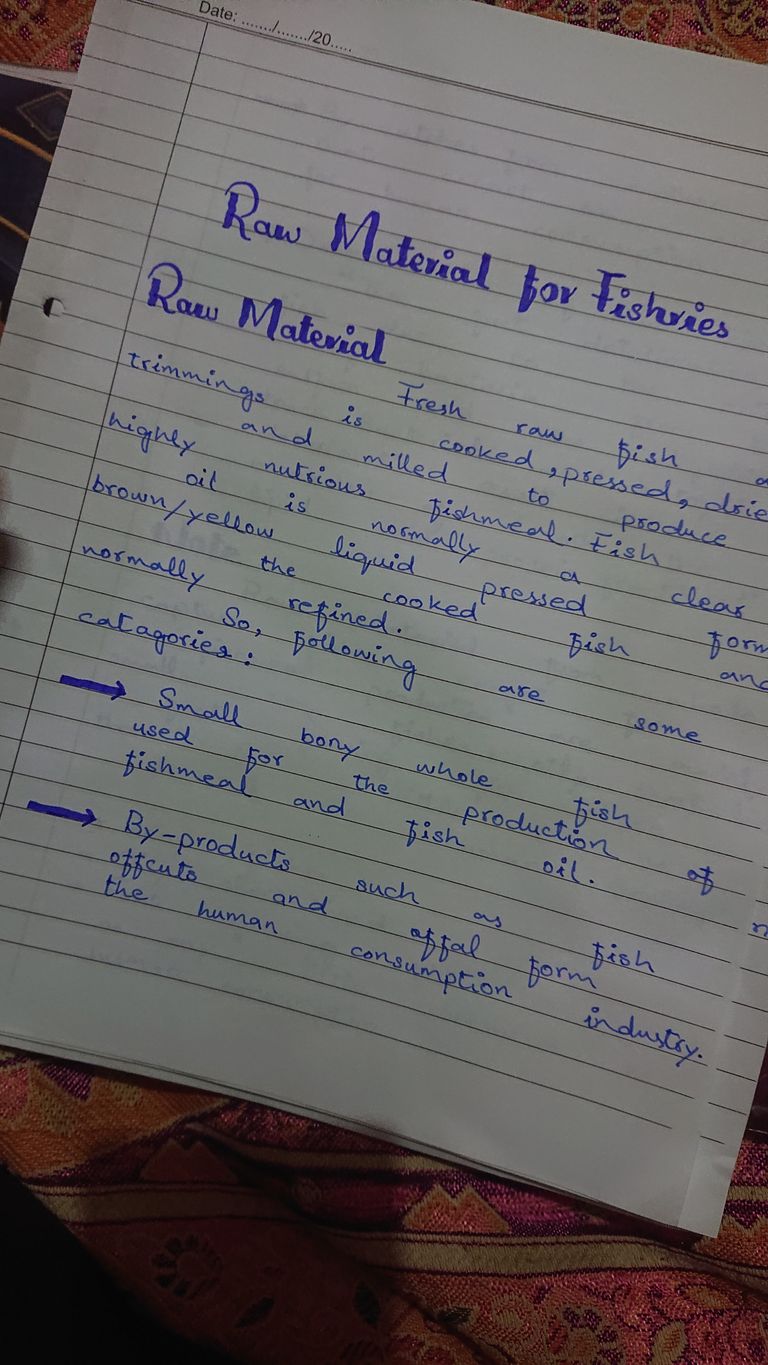 Date: ......./......./20.....
Raw Material for Fishries
Raw Material
Fresh raw fish
trimmings is cooked, pressed, drie
and milled to produce
highly nutrious fishmeal. Fish
oil is normally a clear
brown/yellow liquid pressed form
the cooked fish and
normally refined.
So, following are some
catagories:
Small bony whole fish
used for the production of
fishmeal and fish oil.
By-products such as fish
offcuts and offal form
the human consumption industry.